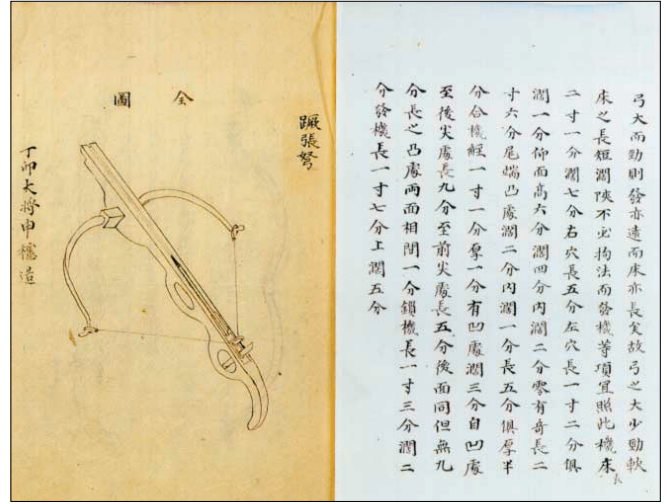 弓大而勁則發亦遠而床亦長矣故弓之大少勁軟
床之長短濶陜不必拘法而發機等項宜照此機床長
二寸一分濶七分右穴長五分左穴長一寸二分俱
濶一分仰面高六分濶四分內濶二分零有奇長二
寸六分尾端凸處濶二分內濶一分長五分俱厚半
分合機經一寸一分厚一分有凹處濶三分自凹處
至後尖處長九分至前尖處長五分後面同但無九
分長之凸處兩面相間一分鎖機長一寸三分濶二
分發機長一寸七分上濶五分
蹶張弩
全圖
丁卯大將申櫶造